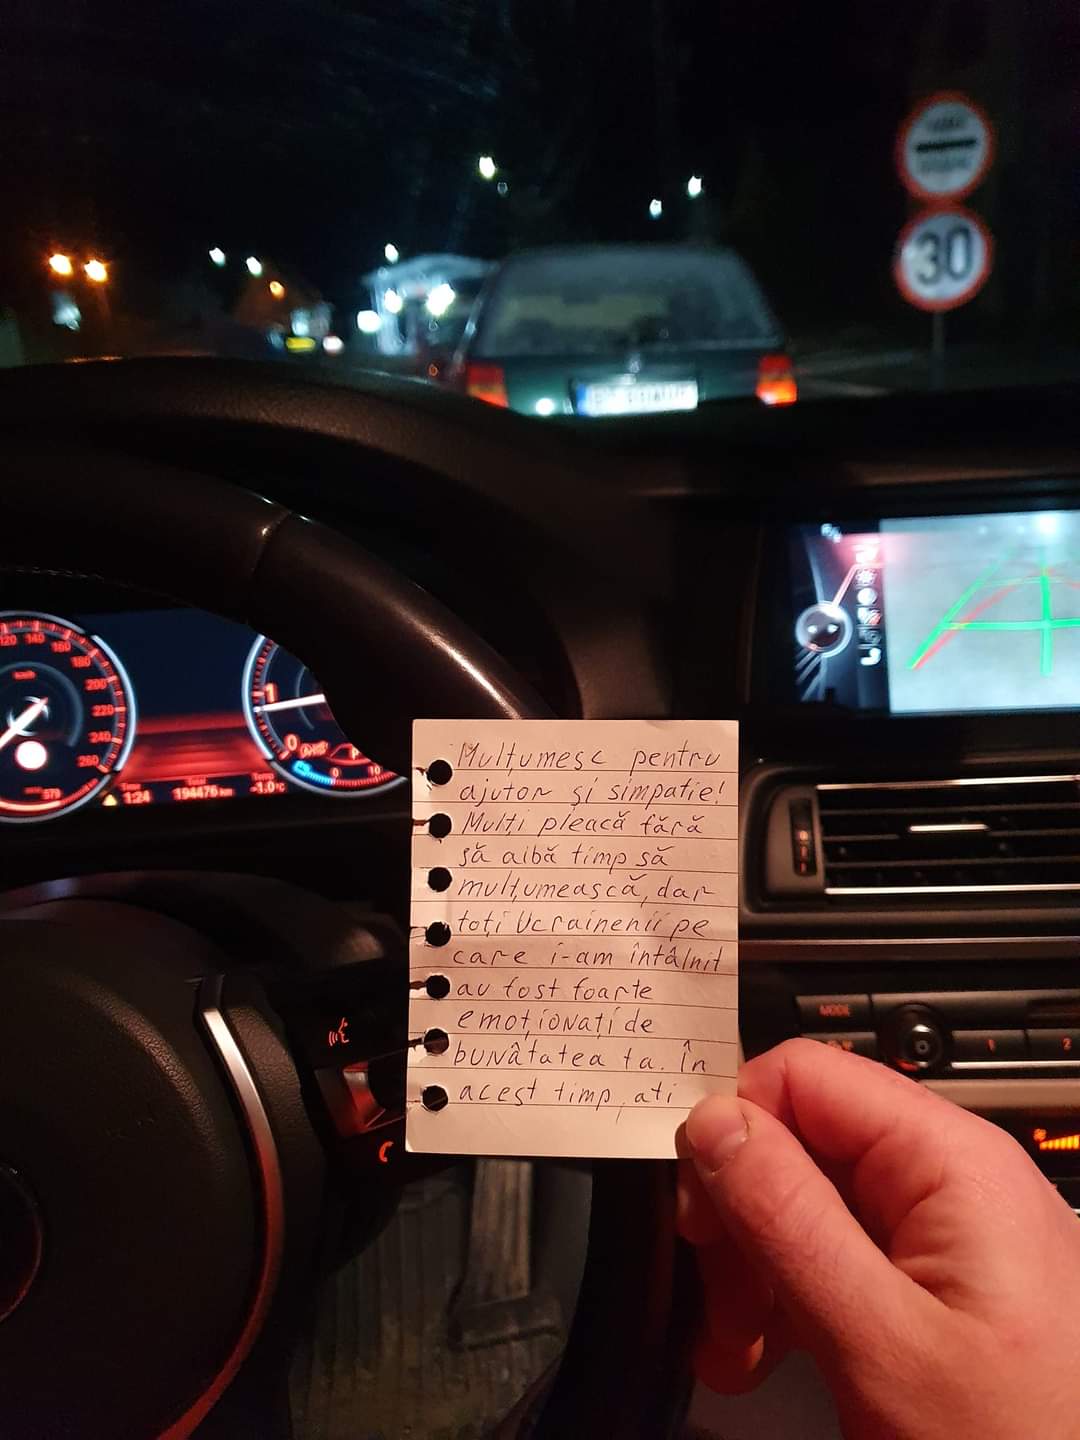 30
120
140
160
180
200
220
240
260
km/h
1
0
0
10
1:24
Total
194475 km
Temp
-1.0°C
Mulțumesc pentru
ajutor și simpatie!
Mulți pleacă fără
să aibă timp să
mulțumească, dar
toți Ucrainenii pe
care i-am întâlnit
au fost foarte
emoționați de
bunâtatea ta. În
acest timp, ați
MODE
1
2